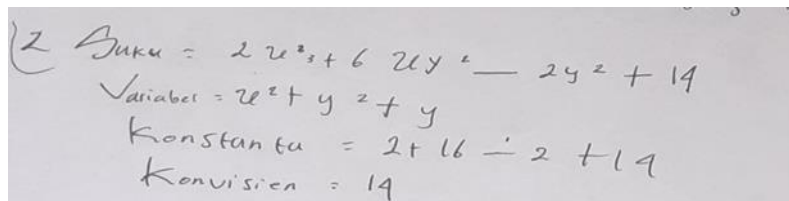 2 Suku = 2x²y + 6xy² — 2y² + 14
Variabel = x² + y² + y
Konstanta = 2 + 16 ÷ 2 + 14
Konvisien = 14